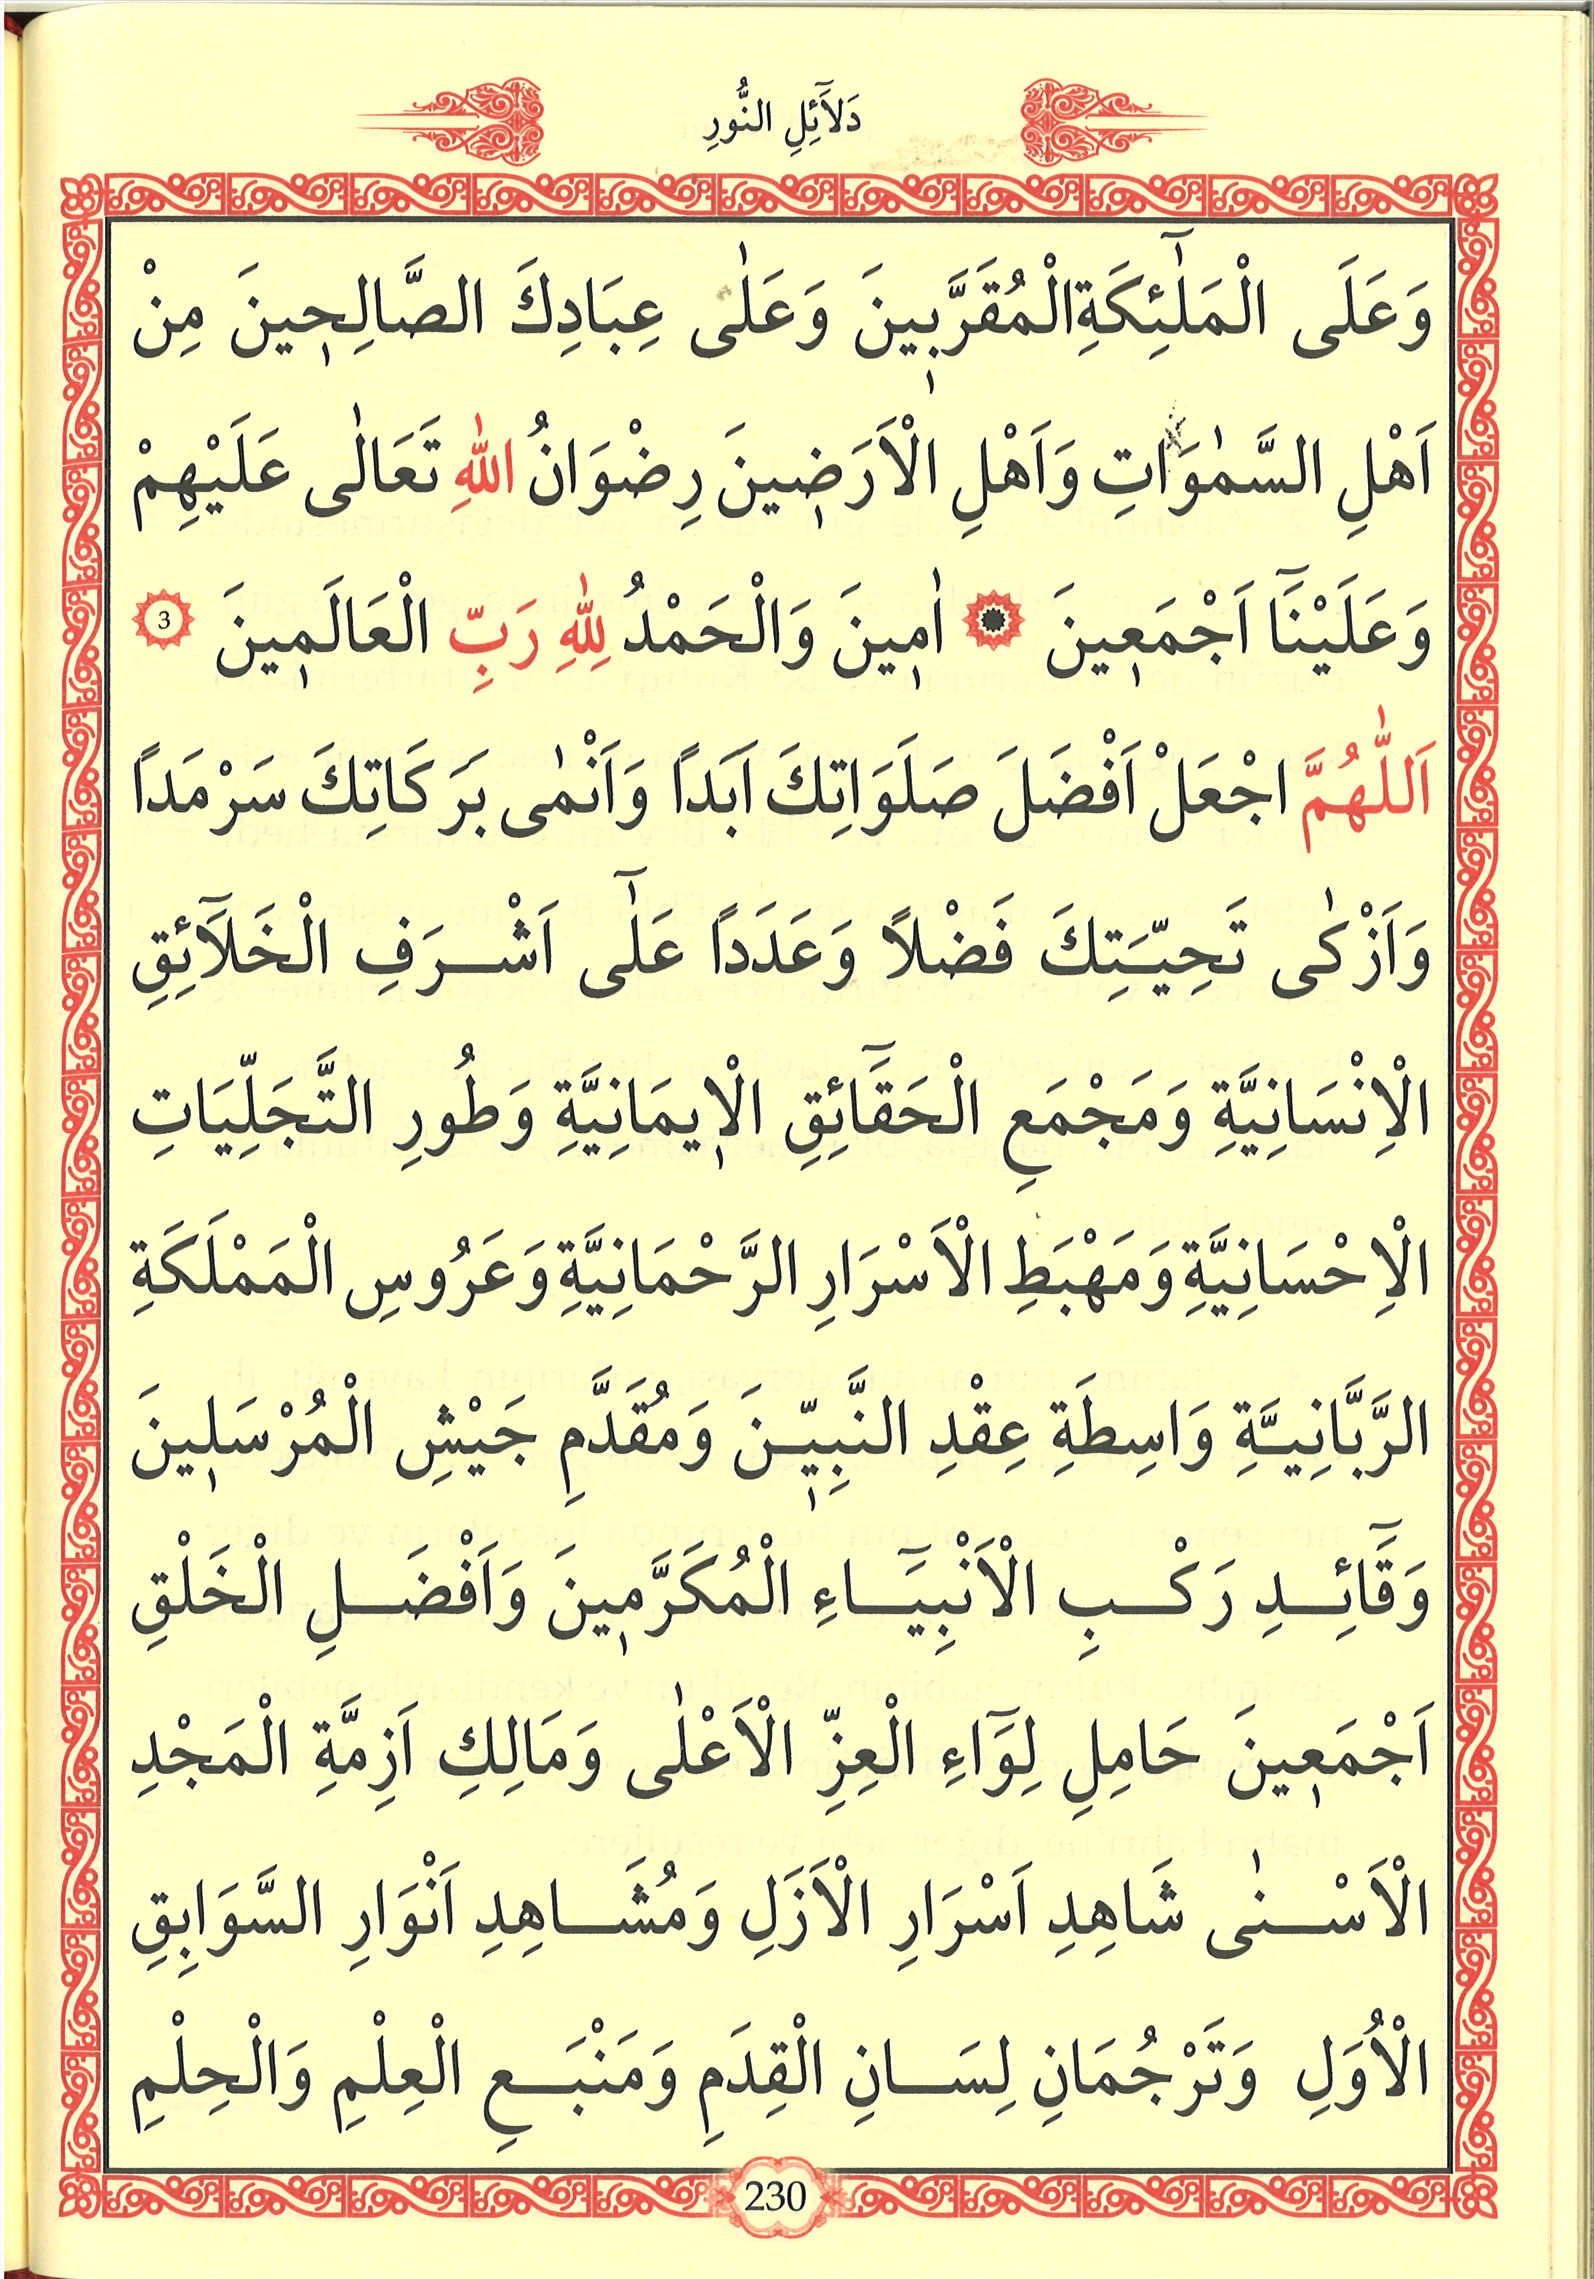 دَلَٓائِلِ النُّورِ
وَعَلَى الْمَلٰٓئِكَةِ الْمُقَرَّبٖينَ وَعَلٰى عِبَادِكَ الصَّالِحٖينَ مِنْ
اَهْلِ السَّمٰوَاتِ وَاَهْلِ الْاَرَضٖينَ رِضْوَانُ اللّٰهِ تَعَالٰى عَلَيْهِمْ
وَعَلَيْنَٓا اَجْمَعٖينَ ۞ اٰمٖينَ وَالْحَمْدُ لِلّٰهِ رَبِّ الْعَالَمٖينَ 3
اَللّٰهُمَّ اجْعَلْ اَفْضَلَ صَلَوَاتِكَ اَبَداً وَاَنْمٰى بَرَكَاتِكَ سَرْمَداً
وَاَزْكٰى تَحِيَّتِكَ فَضْلاً وَعَدَداً عَلٰٓى اَشْرَفِ الْخَلَٓائِقِ
الْاِنْسَانِيَّةِ وَمَجْمَعِ الْحَقَٓائِقِ الْاٖيمَانِيَّةِ وَطُورِ التَّجَلِّيَاتِ
الْاِحْسَانِيَّةِ وَمَهْبَطِ الْاَسْرَارِ الرَّحْمَانِيَّةِ وَعَرُوسِ الْمَمْلَكَةِ
الرَّبَّانِيَّةِ وَاسِطَةِ عِقْدِ النَّبِيّٖنَ وَمُقَدَّمِ جَيْشِ الْمُرْسَلٖينَ
وَقَٓائِدِ رَكْبِ الْاَنْبِيَٓاءِ الْمُكَرَّمٖينَ وَاَفْضَلِ الْخَلْقِ
اَجْمَعٖينَ حَامِلِ لِوَٓاءِ الْعِزِّ الْاَعْلٰى وَمَالِكِ اَزِمَّةِ الْمَجْدِ
الْاَسْنٰى شَاهِدِ اَسْرَارِ الْاَزَلِ وَمُشَاهِدِ اَنْوَارِ السَّوَابِقِ
الْاُوَلِ وَتَرْجُمَانِ لِسَانِ الْقِدَمِ وَمَنْبَعِ الْعِلْمِ وَالْحِلْمِ
230